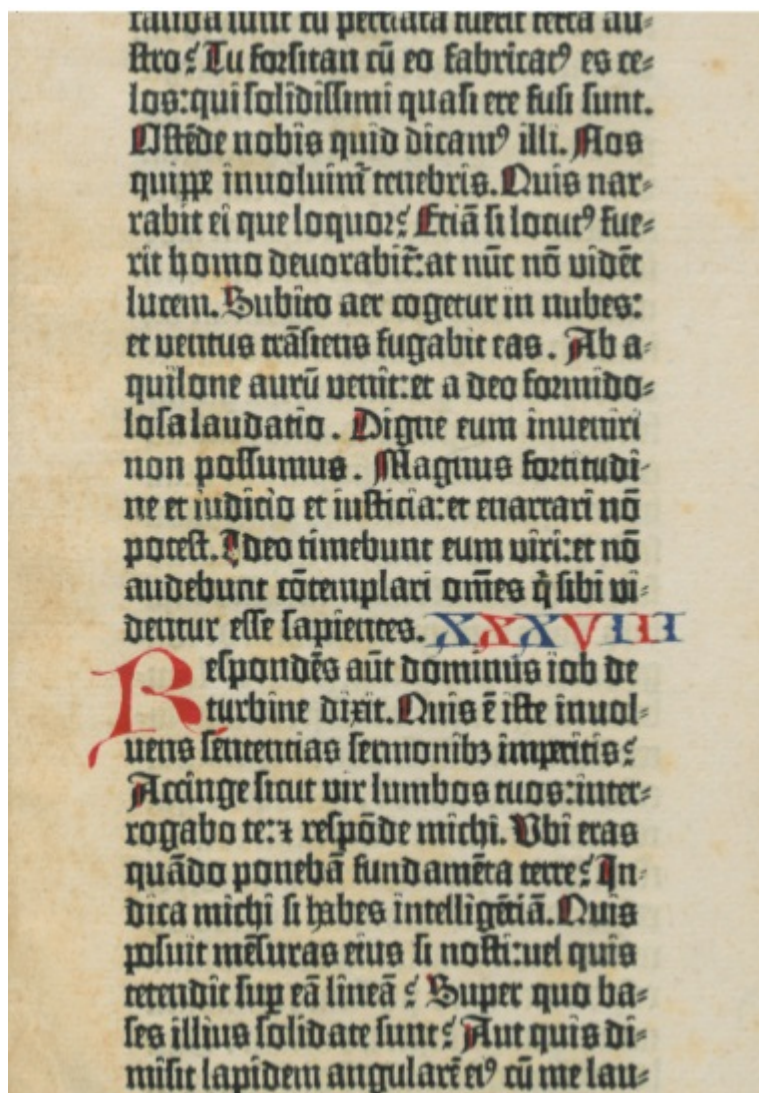 calida sunt cũ perflata fuerit terra au⸗
stro? Tu forsitan cũ eo fabricatꝰ es ce⸗
los: qui solidissimi quasi ere fusi sunt.
Ostẽde nobis quid dicamꝰ illi. Nos
quippe inuoluimr̃ tenebris. Quis nar⸗
rabit ei que loquor? Etiã si locutꝰ fue⸗
rit homo deuorabit̃: at nũc nõ vidẽt
lucem. Subito aer cogetur in nubes:
et ventus trãsiens fugabit eas. Ab a⸗
quilone aurũ venit: et a deo formido⸗
losa laudatio. Digne eum inuenire
non possumus. Magnus fortitudi⸗
ne et iudicio et iusticia: et enarrari nõ
potest. Ideo timebunt eum viri: et nõ
audebunt cõtemplari om̃es q̃ sibi vi⸗
dentur esse sapientes. XXXVIII
Respondẽs aũt dominus iob de
turbine dixit. Quis ẽ iste inuol⸗
uens sententias sermonibꝫ imperitis?
Accinge sicut vir lumbos tuos: inter⸗
rogabo te: ⁊ respõde michi. Vbi eras
quãdo ponebã fundamẽta terre? In⸗
dica michi si habes intelligẽtiã. Quis
posuit mẽsuras eius si nosti: vel quis
tetendit suꝑ eã lineã? Super quo ba⸗
ses illius solidate sunt? Aut quis di⸗
misit lapidem angularẽ eiꝰ cũ me lau⸗